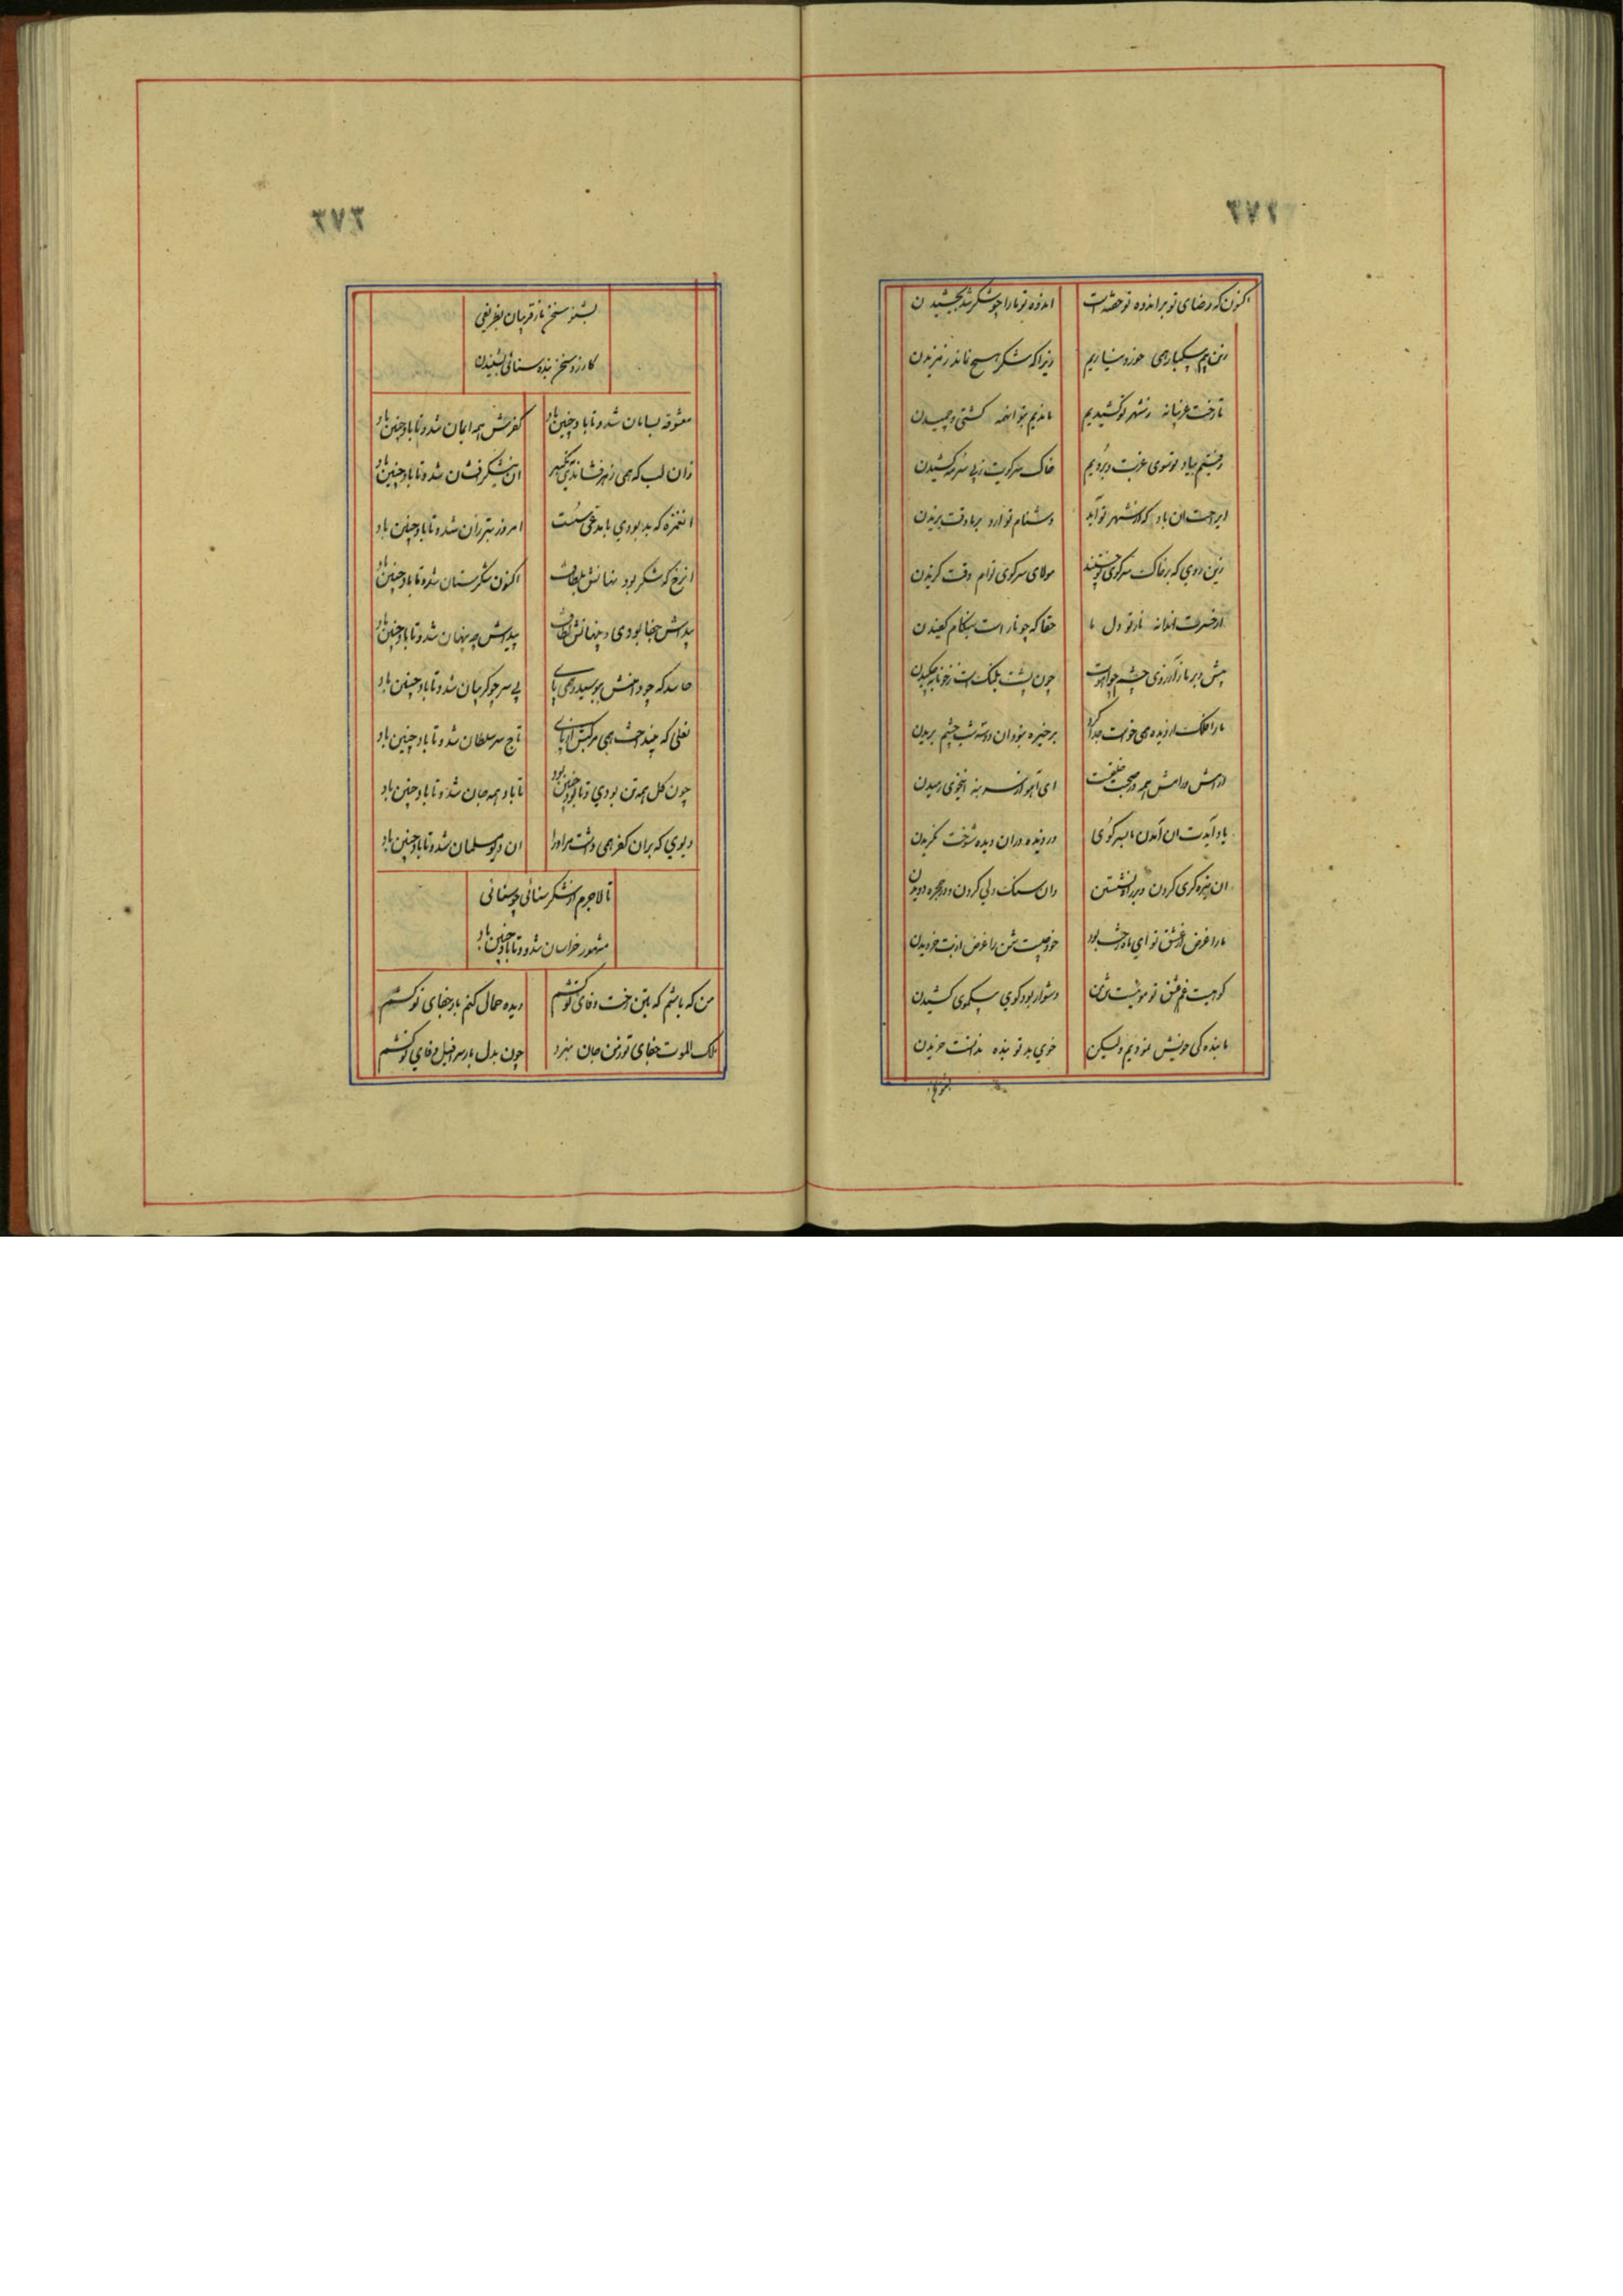 ٣٧٢
اکنون که رضای تو بر اندوه تو خفته است
اندوه تو ما را چو شکر شد بچشیدن
زیراکه شکر هیچ نماند ز مزیدن
تا رخت غریبانه ز شهر تو کشیدیم
ماندیم بتو انهمه کشتی و چمیدن
خاک سر کویت ز پی سرمه کشیدن
ای راحت ان باد که از شهر تو آید
دشنام تو ارد بر ما وقت بزیدن
زین روی که بر خاک سر کوی تو
مولای سر کوی توام وقت کزیدن
از حسرت اندانه نار تو دل ما
حقا که چو نار است بهنکام کفیدن
چون پشت پلنک است ز خونابه چکیدن
ما را فلک از دیده همی خواست جدا کرد
بر خیره نبود ان دو سه شب چشم پریدن
ای اهو از سر بنه انخوی رمیدن
یاد آیدت ان آمدن ما بسر کوی
دزدیده دران دیده شوخت نکریدن
ان تیزه کری کردن و بر راه نشستن
وان سنک دلی کردن و در حجره دویدن
ما را غرض از عشق تو ای ماه رخت بود
خود چیست شمن را غرض از بت خردیدن
کوهیست غم عشق تو موئیست تن من
دشوار بود کوی بیکموی کشیدن
ما بنده کی خویش نمودیم ولیکن
خوی بد تو بنده ندانست خریدن
٣٧٣
بشنو سخن ما ز قریبان بظریفی
کارزد سخن بنده سنائی بشنیدن
معشوقه بسامان شد و تا باد چنین باد
کفرش همه ایمان شد و تا باد چنین باد
زان لب که همی زهر فشاندی بتکبر
ان شکر فشان شد و تا باد چنین باد
انغمزه که بد بودی با مدعی سست
امروز بتر زان شد و تا باد چنین باد
انرخ که شکر بود نهانش بلطافت
اکنون شکرستان شد و تا باد چنین باد
پیداش جفا بودی و پنهانش لطافت
پیداش چه پنهان شد و تا باد چنین باد
حاسد که چو دامنش ببوسیدی همی پای
بی سر چو کریبان شد و تا باد چنین باد
نعلی که بینداخت همی مرکبش از پای
تاج سر سلطان شد و تا باد چنین باد
چون کل همه تن بودی و تا بود چنین بود
تا باد همه جان شد و تا باد چنین باد
دیوی که بران کفر همی داشت مر او را
ان دیو مسلمان شد و تا باد چنین باد
تا لاجرم از شکر سنائی چو سنائی
مشهور خراسان شد و تا باد چنین باد
من که باشم که بتن رخت وفای تو کشم
دیده حمال کنم بار جفای تو کشم
ملک الموت جفای تو ز من جان ببرد
چون بدل بار سرافیل وفای تو کشم